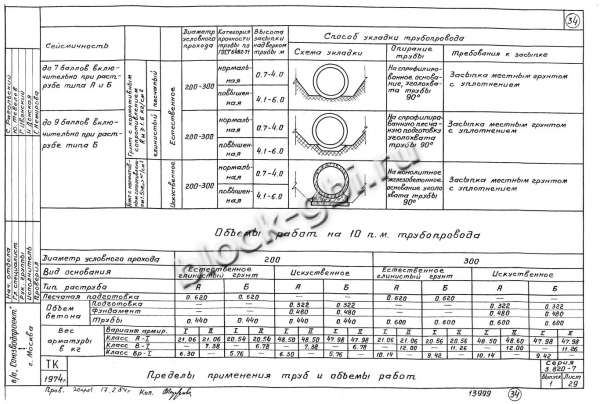 34
Сейсмичность
Диаметр условного прохода
Категория прочности трубы по ГОСТ 6482-71
Высота засыпки над верхом трубы м
Способ укладки трубопровода
Схема укладки
Опирание трубы
Требования к засыпке
до 7 баллов вклю-
чительно при раст-
рубе типа А и Б
Естественное
200-300
нормаль-
ная
0.7-4.0
повышен-
ная
4.1-6.0
На спрофилиро-
ванное основа-
ние, угол охва-
та трубы
90°
Засыпка местным грунтом
с уплотнением
до 9 баллов вклю-
чительно при раст-
рубе типа Б
200-300
нормаль-
ная
0.7-4.0
повышен-
ная
4.1-6.0
На спрофилиро-
ванную песча-
ную подготовку
угол охвата
трубы 90°
Засыпка местным грунтом
с уплотнением
Искусственное
200-300
нормаль-
ная
0.7-4.0
повышен-
ная
4.1-6.0
На монолитное
железобетонное
основание угол
охвата трубы
90°
Засыпка местным грунтом
с уплотнением
block-gbi.ru
Объемы работ на 10 п.м. трубопровода
Диаметр условного прохода 200 300
Вид основания Естественное глинистый грунт Искусственное Естественное глинистый грунт Искусственное
Тип раструба А Б А Б А Б А Б
Песчаная подготовка 0.620 0.620 — — 0.620 0.620 — —
Объем бетона
Подготовка — — 0.322 0.322 — — 0.322 0.322
Фундамент — — 0.480 0.480 — — 0.480 0.480
Трубы 0.440 0.440 0.440 0.440 0.600 0.600 0.600 0.600
Вес арматуры в кг
Вариант армир. I II I II I II I II I II I II I II I II
Класс А-I 21.06 21.06 20.54 20.54 48.50 48.50 47.98 47.98 21.06 21.06 20.56 20.56 48.50 48.50 47.98 47.98
Класс В-I — 7.38 — 6.78 — 7.38 — 6.78 — 12.00 — 11.26 — 12.00 — 11.26
Класс Вр-I 6.30 — 5.76 — 6.30 — 5.76 — 10.14 — 9.42 — 10.14 — 9.42 —
ТК
1974г.
Пределы применения труб и объемы работ
Серия
3.820-7
Выпуск Лист
1 29
г. Москва
Нач. отдела
Гл. специалист
Рук. группы
Исполнитель
Проверил
13999
34